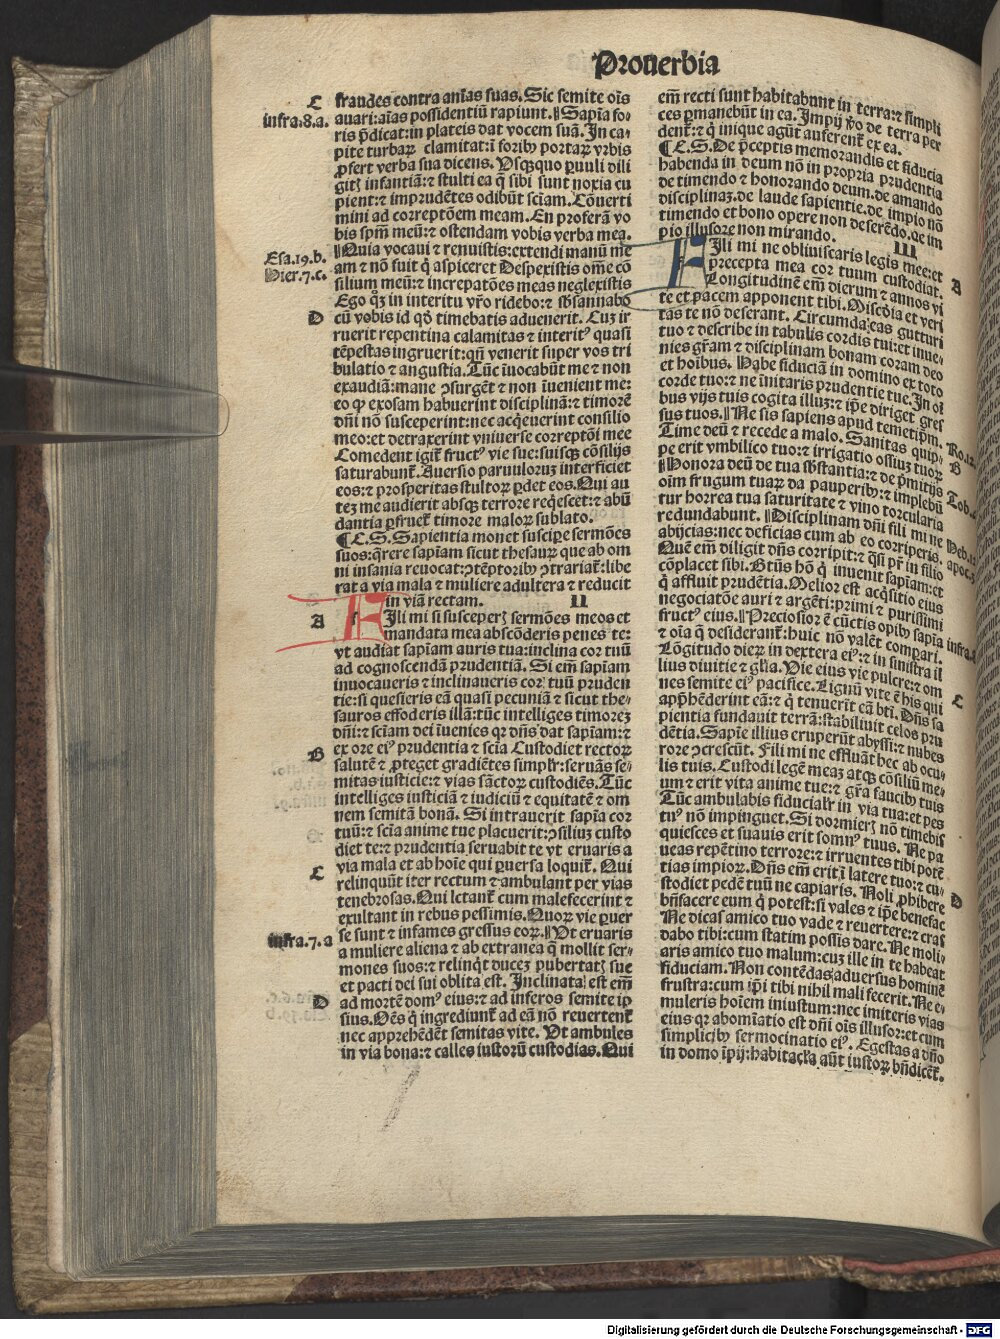 Prouerbia
C
infra.8.a.
fraudes contra anīas suas. Sic semite oīs
auari: aīas possidentiū rapiunt. Sapīa fo-
ris p̄dicat: in plateis dat vocem suā. In ca-
pite turbaꝝ clamitat: ī forib⁹ portaꝝ vrbis
ꝓfert verba sua dicens. Vsq̨quo ꝑuuli dili
gitꝭ infantiā: ⁊ stulti ea q̄ sibi sunt noxia cu
pient: ⁊ imprudētes odibūt sciam. Cōuerti
mini ad correptōem meam. En proferā vo
bis spm̄ meū: ⁊ ostendam vobis verba mea.
Esa.19.b.
Hier.7.c.
Quia vocaui ⁊ renuistis: extendi manū me
am ⁊ nō fuit q̄ aspiceret Despexistis om̄e cō
silium meū: ⁊ increpatōes meas neglexistis
Ego qꝫ in interitu vr̄o ridebo: ⁊ sb̄sannabo
D
cū vobis id qd̄ timebatis aduenerit. Cuꝫ ir
ruerit repentina calamitas ⁊ interit⁹ quasi
tēpestas ingruerit: qn̄ venerit super vos tri
bulatio ⁊ angustia. Tūc īuocabūt me ⁊ non
exaudiā: mane ꝯsurgēt ⁊ non īuenient me:
eo ꝙ exosam habuerint disciplinā: ⁊ timorē
dn̄i nō susceperint: nec acq̄euerint consilio
meo: et detraxerint vniuerse correptōi mee
Comedent igit̄ fruct⁹ vie sue: suisq̨ cōsilijs
saturabunt̄. Auersio paruuloruꝫ interficiet
eos: ⁊ prosperitas stultoꝝ ꝑdet eos. Qui au
teꝫ me audierit absq̨ terrore reqēscet: ⁊ abū
dantia ꝑfruet̄ timore maloꝝ sublato.
¶ C.S. Sapientia monet suscipe sermōes
suos: q̄rere sapīam sicut thesauꝝ que ab om
ni insania reuocat: ꝯtēptorib⁹ ꝯtrariat̄: libe
rat a via mala ⁊ muliere adultera ⁊ reducit
in viā rectam. II
A
Fili mi si susceperꝭ sermōes meos et
mandata mea abscōderis penes te:
vt audiat sapīam auris tua: inclina cor tuū
ad cognoscendā prudentiā. Si em̄ sapīam
inuocaueris ⁊ inclinaueris cor tuū pruden
tie: si quesieris eā quasi pecuniā ⁊ sicut the-
sauros effoderis illā: tūc intelliges timoreꝫ
dn̄i: ⁊ sciam dei īuenies qꝛ dn̄s dat sapīam: ⁊
B
ex ore ei⁹ prudentia ⁊ scīa Custodiet rectoꝝ
salutē ⁊ ꝓteget gradiētes simplr̄: seruās se-
mitas iusticie: ⁊ vias sāctoꝝ custodiēs. Tūc
intelliges iusticiā ⁊ iudiciū ⁊ equitatē ⁊ om
nem semitā bonā. Si intrauerit sapīa cor
tuū: ⁊ scīa anime tue placuerit: ꝯsiliuꝫ custo
diet te: ⁊ prudentia seruabit te vt eruaris a
C
via mala et ab hoīe qui ꝑuersa loquit̄. Qui
relinquūt iter rectum ⁊ ambulant per vias
tenebrosas. Qui letant̄ cum malefecerint ⁊
exultant in rebus pessimis. Quoꝝ vie ꝑuer
infra.7.a
se sunt ⁊ infames gressus eoꝝ. Vt eruaris
a muliere aliena ⁊ ab extranea q̄ mollit ser-
mones suos: ⁊ relinq̄t duceꝫ pubertatꝭ sue
et pacti dei sui oblita est. Inclinata est em̄
D
ad mortē dom⁹ eius: ⁊ ad inferos semite ip
sius. Oēs q̄ ingrediunt̄ ad eā nō reuertent̄
nec apprehēdēt semitas vite. Vt ambules
in via bona: ⁊ calles iustorū custodias. Qui
em̄ recti sunt habitabunt in terra: ⁊ simpli
ces ꝑmanebūt in ea. Impij v̄o de terra per
dent̄: ⁊ q̄ inique agūt auferent̄ ex ea.
¶ C.S. De p̄ceptis memorandis et fiducia
habenda in deum nō in propria prudentia
de timendo ⁊ honorando deum. de amando
disciplinaꝫ. de laude sapientie. de impio nō
timendo et bono opere non deserēdo. de im
pio illusore non mirando. III
A
Fili mi ne obliuiscaris legis mee: et
precepta mea cor tuum custodiat.
Longitudinē em̄ dierum ⁊ annos vi
te et pacem apponent tibi. Miscd̄ia et veri
tas te nō deserant. Circumda eas gutturi
tuo ⁊ describe in tabulis cordis tui: et inue-
nies gr̄am ⁊ disciplinam bonam coram deo
et hoībus. Habe fiduciā in domino ex toto
corde tuo: ⁊ ne īnitaris prudentie tue. In oī
bus vijs tuis cogita illuꝫ: ⁊ ip̄e diriget gres
sus tuos. Ne sis sapiens apud temetipm̄.
Ro.12.
Time deū ⁊ recede a malo. Sanitas quip-
B
pe erit vmbilico tuo: ⁊ irrigatio ossiuꝫ tuoꝝ
Honora deū de tua sb̄stantia: ⁊ de p̄mitijs
Tob.4
oīm frugum tuaꝝ da pauperib⁹: ⁊ implebūt
tur horrea tua saturitate ⁊ vino torcularia
redundabunt. Disciplinam dn̄i fili mi ne
Heb.12
abijcias: nec deficias cum ab eo corriperis.
apoc.3
Quē em̄ diligit dn̄s corripit: ⁊ q̄si pr̄ in filio
cōplacet sibi. Bt̄us hō q̄ inuenit sapīam: et
q̄ affluit prudētia. Melior est acq̄sitio eius
negociatōe auri ⁊ argēti: primi ⁊ purissimi
fruct⁹ eius. Preciosior ē cūctis opib⁹ sapīa
infra.8
⁊ oīa q̄ desiderant̄: huic nō valēt compari.
Lōgitudo dieꝝ in dextera ei⁹: ⁊ in sinistra il
lius diuitie ⁊ gl̄ia. Vie eius vie pulcre: ⁊ om
nes semite ei⁹ pacifice. Lignū vite ē his qui
C
app̄hēderint eā: ⁊ q̄ tenuerit eā bt̄i. Dn̄s sa
pientia fundauit terrā: stabiliuit celos pru
dētia. Sapīe illius eruperūt abyssi: ⁊ nubes
rore ꝯcrescūt. Fili mi ne effluāt hec ab ocu-
lis tuis. Custodi legē meaꝫ atq̨ cōsiliū me-
um ⁊ erit vita anime tue: ⁊ gr̄a faucib⁹ tuis
Tūc ambulabis fiducialr̄ in via tua: et pes
tu⁹ nō impinguet. Si dormierꝭ nō timebis
quiesces et suauis erit somn⁹ tuus. Ne pa
ueas repētino terrore: ⁊ irruentes tibi potē
tias impioꝝ. Dn̄s em̄ erit ī latere tuo: ⁊ cu-
stodiet pedē tuū ne capiaris. Noli ꝓhibere
D
bn̄facere eum q̄ potest: si vales ⁊ ip̄e benefac
Ne dicas amico tuo vade ⁊ reuertere: ⁊ cras
dabo tibi: cum statim possis dare. Ne moli-
aris amico tuo malum: cuꝫ ille in te habeat
fiduciam. Non contēdas aduersus hominē
frustra: cum ip̄i tibi nihil mali fecerit. Ne e-
muleris hoīem iniustum: nec imiteris vias
eius qꝛ abomīatio est dn̄i oīs illusor: et cum
simplicib⁹ sermocinatio ei⁹. Egestas a dn̄o
in domo īpij: habitac̄la aūt iustoꝝ bn̄dicēt̄.
Digitalisierung gefördert durch die Deutsche Forschungsgemeinschaft - DFG